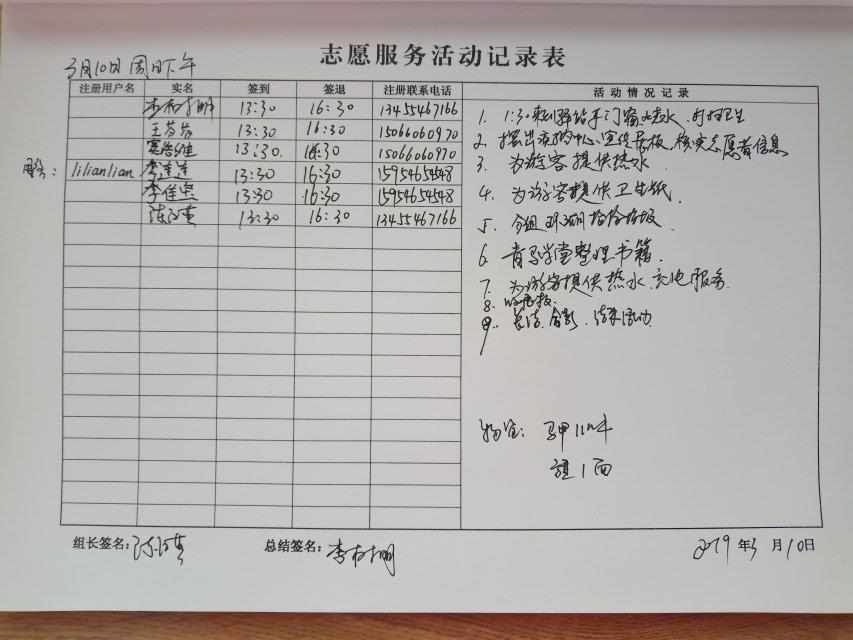 志愿服务活动记录表
3月10日 周日下午
注册用户名 实名 签到 签退 注册联系电话 活动情况记录
13:30 16:30 13455467166
王芬芬 13:30 16:30 15066060970
13:30. 16:30 15066060970
lilianlian 李莲莲 13:30 16:30 15954654548
李佳 13:30 16:30 15954654548
陈 13:30 16:30 13455467166
1. 1:30 驿站开门 烧水 打扫卫生
2. 摆出 中心、宣传展板, 核实志愿者信息
3. 为游客提供热水
4. 为游客提供卫生纸
5. 分组环湖捡垃圾
6. 青马学堂整理书籍.
7. 为游客提供热水、充电服务.
8.
9. 总结. 合影. 结束活动
物资: 马甲
旗1面
组长签名:
总结签名:
2019年3月10日